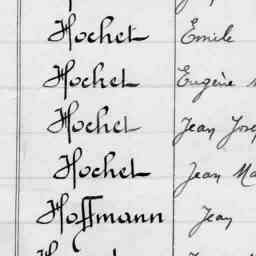 Hochet Emile
Hochet Eugène
Hochet Jean
Hochet Jean
Hoffmann Jean